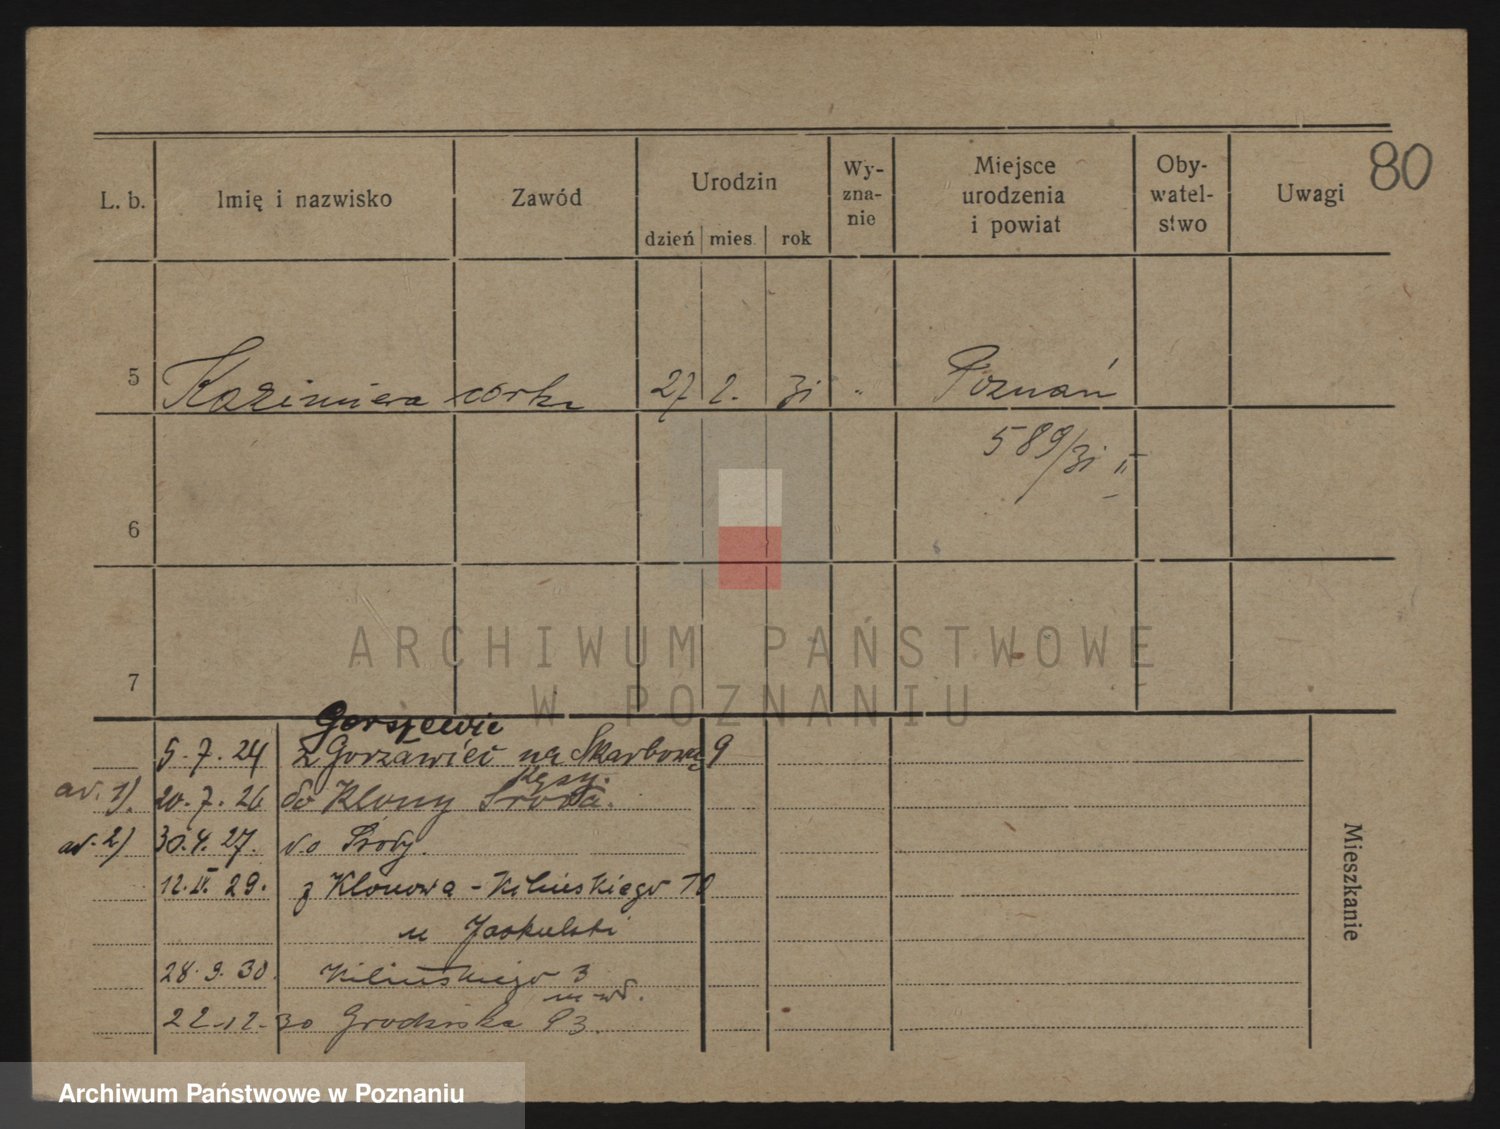 80
L. b. Imię i nazwisko Zawód Urodzin dzień mies. rok Wy-zna-nie Miejsce urodzenia i powiat Oby-watel-stwo Uwagi
5 Kazimiera córka 27 2. 31 " Poznań
589/31 II
6
7
ARCHIWUM PAŃSTWOWE
W POZNANIU
Gorszewic
5.7.24 z Gorzawieć na Skarbową 9
ad. 1). 20.7.26 do Klony Środa.
ad. 2) 30.4.27. do Środy.
12.IV.29. z Klonowa - Kilinskiego 10
u Jaskulski
28.9.30. Kilińskiego 3
22.12.30 Grodziska
Mieszkanie
Archiwum Państwowe w Poznaniu